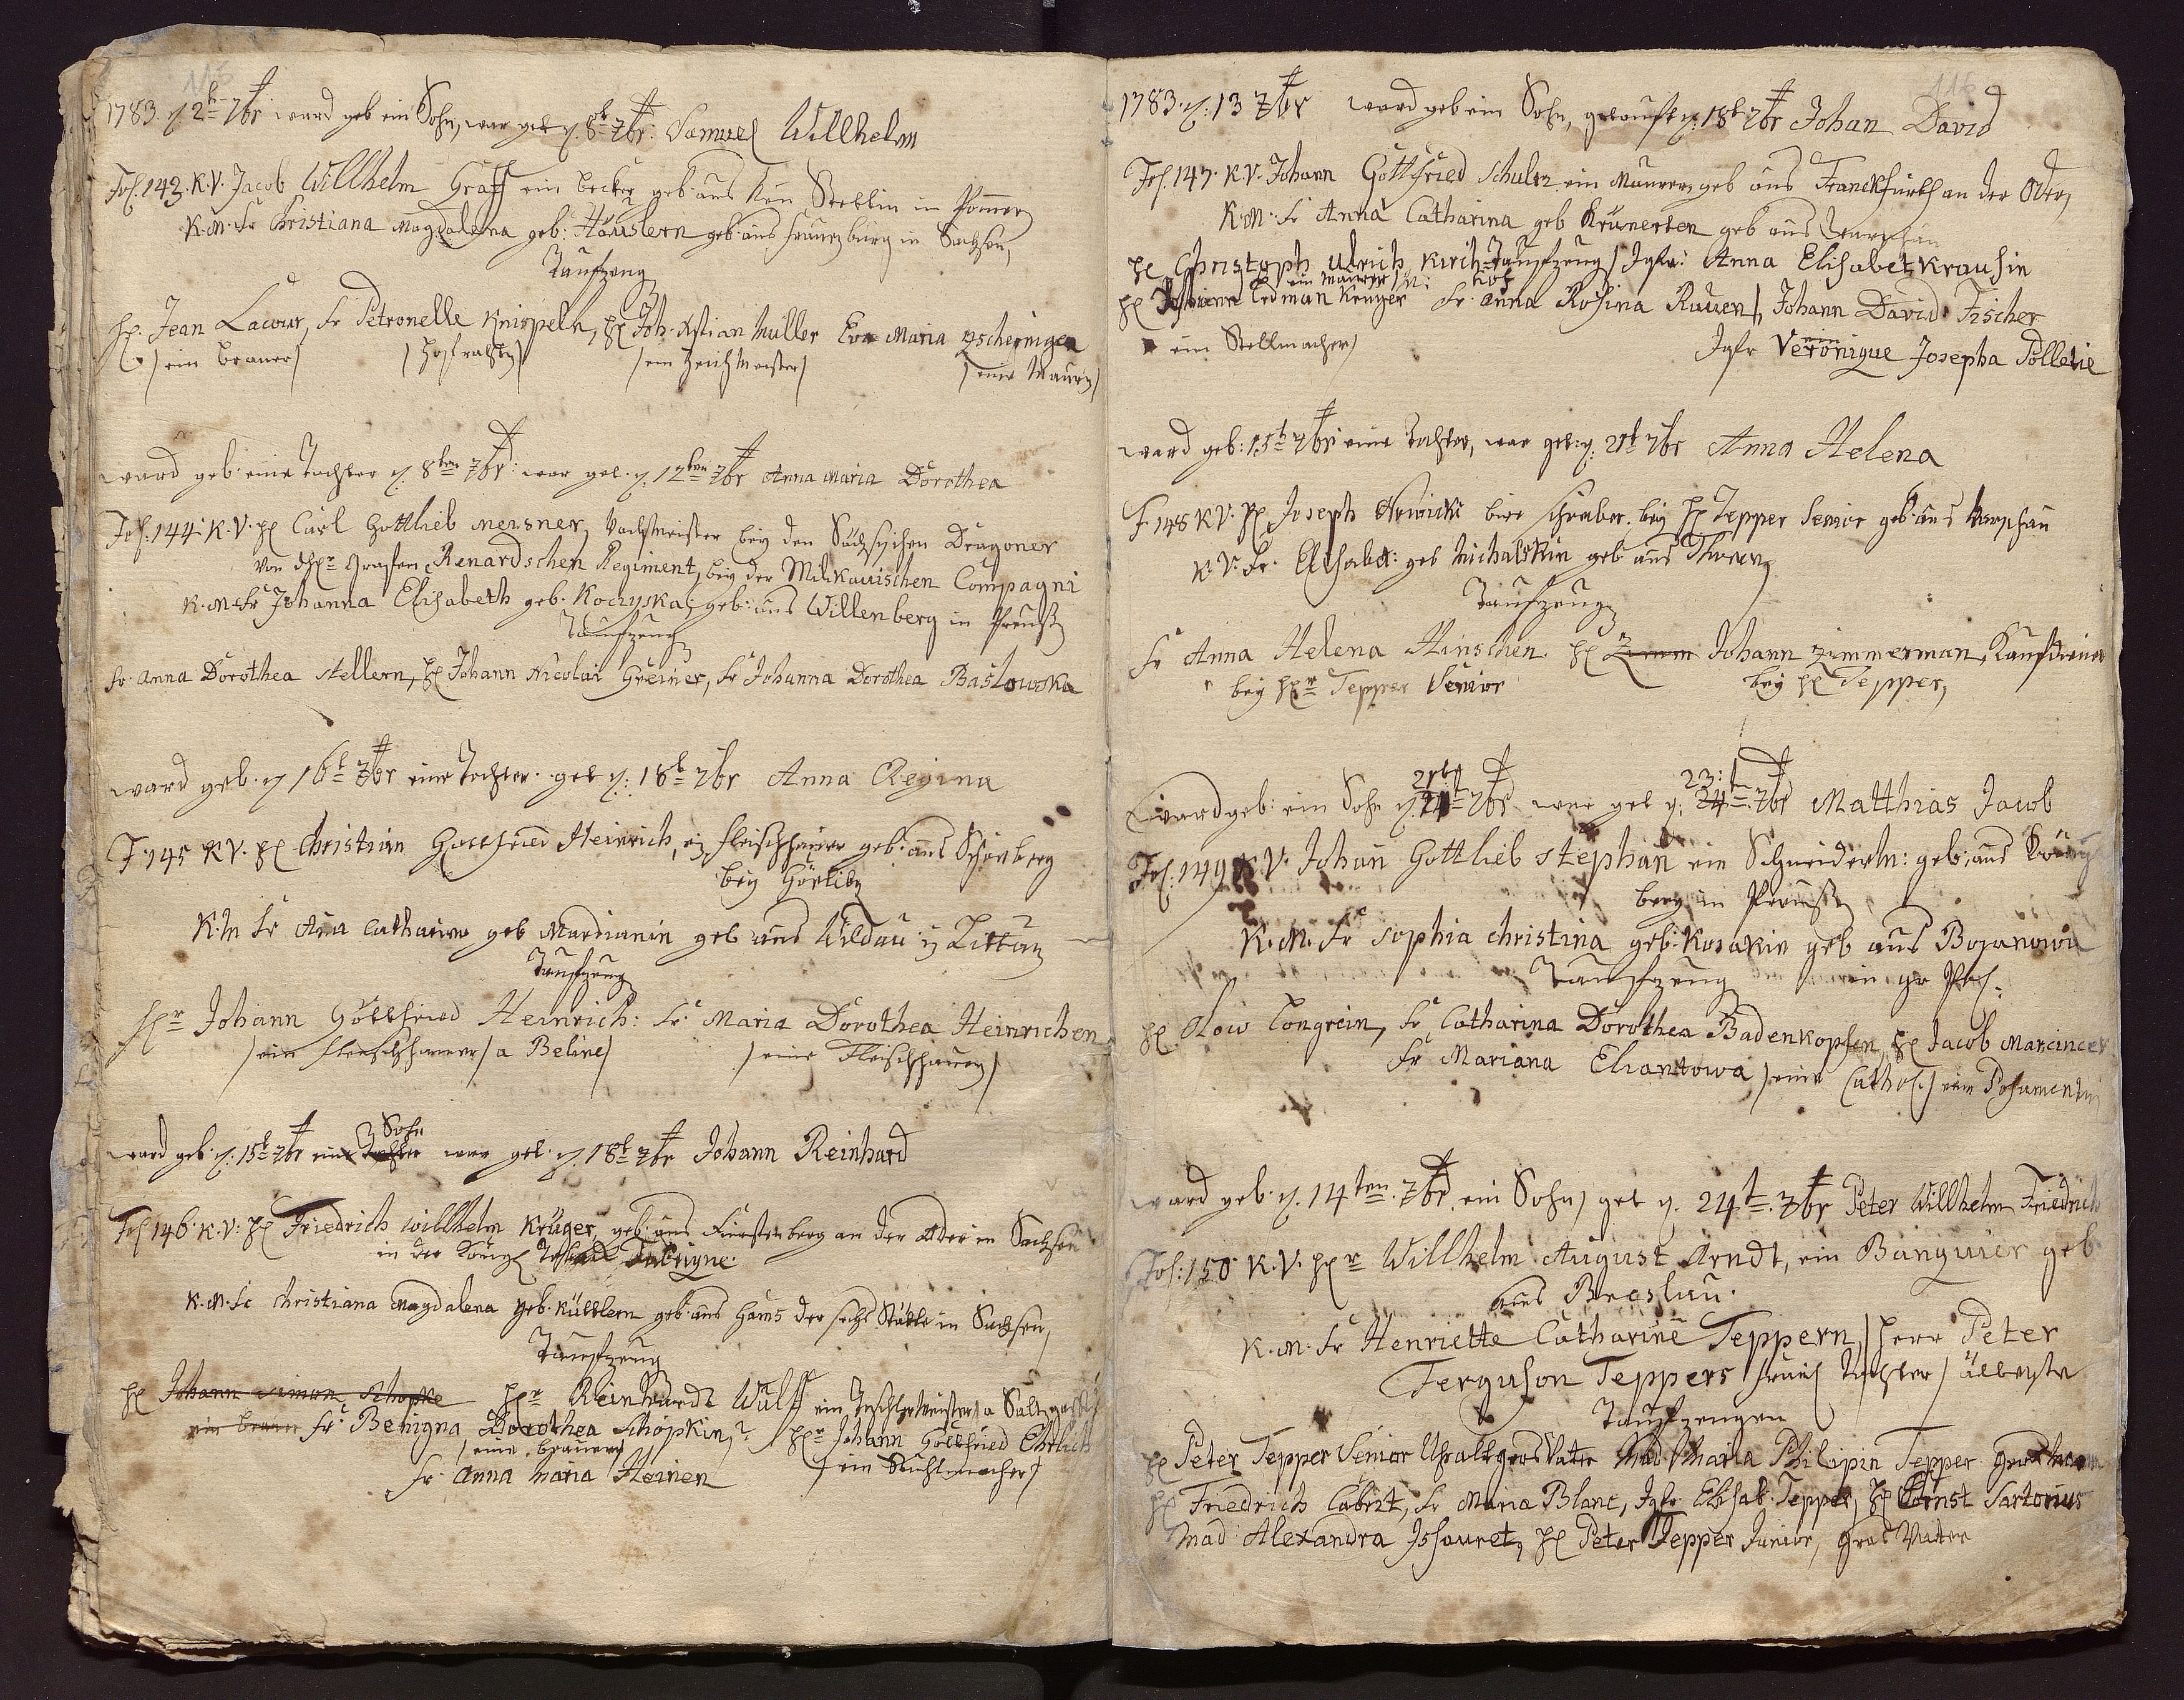 115
1783. d. 2t 7br ward geb ein Sohn, war get d. 8t 7br: Samuel Willhelm
Fol. 143. K.V. Jacob Willhelm Graff ein becker geb. aus Neu Stettin in Pommern
K.M. Fr Christiana Magdalena geb: Häuslern geb. aus in Sachsen,
Taufzeug
H. Jean Lacour, Fr Petronelle Knispeln, H Joh. Xstian Muller Eva Maria
/ein brauer/ /ein Zeichmeister/ /eine Maurern/
ward geb. eine Tochter d. 8ten 7br: war get. d. 12ten 7br Anna Maria Dorothea
Fol. 144. K.V. H Carl Gottlieb Meisner, Wachtmeister bey den Sächsischen Dragoner
von Grafen Renardschen Regiment, bey der Milkauischen Compagni
K.M. Fr Johanna Elisabeth geb. Koczyska, geb: aus Willenberg in Preuss
Taufzeug
Fr. Anna Dorothea Stellern, H Johann Nicolai Greiner, Fr Johanna Dorothea Baslowska
ward geb. d 16t 7br eine Tochter. get d: 18t 7br Anna Regina
F. 145 K.V. H Christian Gottfried Heinrich, ein fleischhauer geb. aus Schönberg
bey Görlitz
K.M Fr Anna Catharina geb Mardianin geb aus Wildau in Littau
Taufzeug
Hr Johann Gottfried Heinrich: Fr. Maria Dorothea Heinrichen
/ein fleischhauer/ a Beline/ /eine Fleischhauern/
Sohn
ward geb. d. 15t 7br eine Tochter war get. d. 18t 7br Johann Reinhard
Fol 146. K.V. H Friedrich Willhelm Krüger, geb. aus Fürstenberg an der Oder in Sachsen
in der Königl Fabrique.
K.M. Fr Christiana Magdalena geb. Küttlern geb. aus der sechs Städte in Sachsen,
Taufzeug
H Johann Simon Schopke Hr Reinhards Wulff ein Tischlermeister a
ein brauer Fr. Benigna Dorothea Schöpkin, Hr Johann Gottfried Ehrlich
/eine brauern/ /ein Stuhlmacher/
Fr. Anna Maria Heinen
116
1783. d. 13 7br ward geb ein Sohn, getauft d. 18t 7br Johan David
Fol. 147. K.V. Johann Gottfried Schulz ein Maurer geb aus Franckfurth an der Oder,
K.M. Fr Anna Catharina geb Krunerten geb aus Warschau
H Christoph Ulrich Kirch Taufzeug / Jgfr: Anna Elisabet Krausin
ein Maurer
H Erdman Kruger Fr. Anna Rosina Rauen/ Johann David Fischer
ein Stellmacher/ Jgfr Veronique Josepha Polletie
ward geb: 15t 7br eine Tochter, war get. d. 21t 7br Anna Helena
F. 148 K.V. H Joseph bier schreiber bey H Tepper Senior geb aus Warschau
K.V. Fr. Elisabet: geb Michalskin geb aus Thorn
Taufzeug
Fr Anna Helena Hinschen. H Zimm Johann Zimmerman, Kaufdiener
bey Hr Tepper Senior bey H Tepper,
21t 23:t
ward geb: ein Sohn d. 7br war get d: 24t 7br Matthias Jacob
Fol: 149 K.V. Johan Gottlieb Stephan ein Schneiderm: geb: aus Königs
berg in Preussen
K.M. Fr Sophia Christina geb: Kozakin geb aus Bojanowa
Taufzeug in gr Pol.
H Low Tongrein, Fr Catharina Dorothea Badenkopfen, H Jacob Marcincer
Fr Mariana Eliantowa /eine Cathol:/ ein Posamentir
ward geb. d. 14ten 7br, ein Sohn, get d. 24t 7br Peter Willhelm Friedrich
Fol: 150 K.V. Hr Willhelm August Arndt, ein Banquier geb
aus Breslau.
K.M. Fr Henriette Catharine Teppern, / Herr Peter
Ferguson Teppers Tochter / älteste
Taufzeugen
H Peter Tepper Senior Grosvater Mad: Maria Philipin Tepper Grosmama
H Friedrich Cabrit, Fr Maria Blanc, Jgfr Elisab. Tepper, H Ernst Sartorius
Mad Alexandra Issauret, H Peter Tepper Junior, Gros Vater